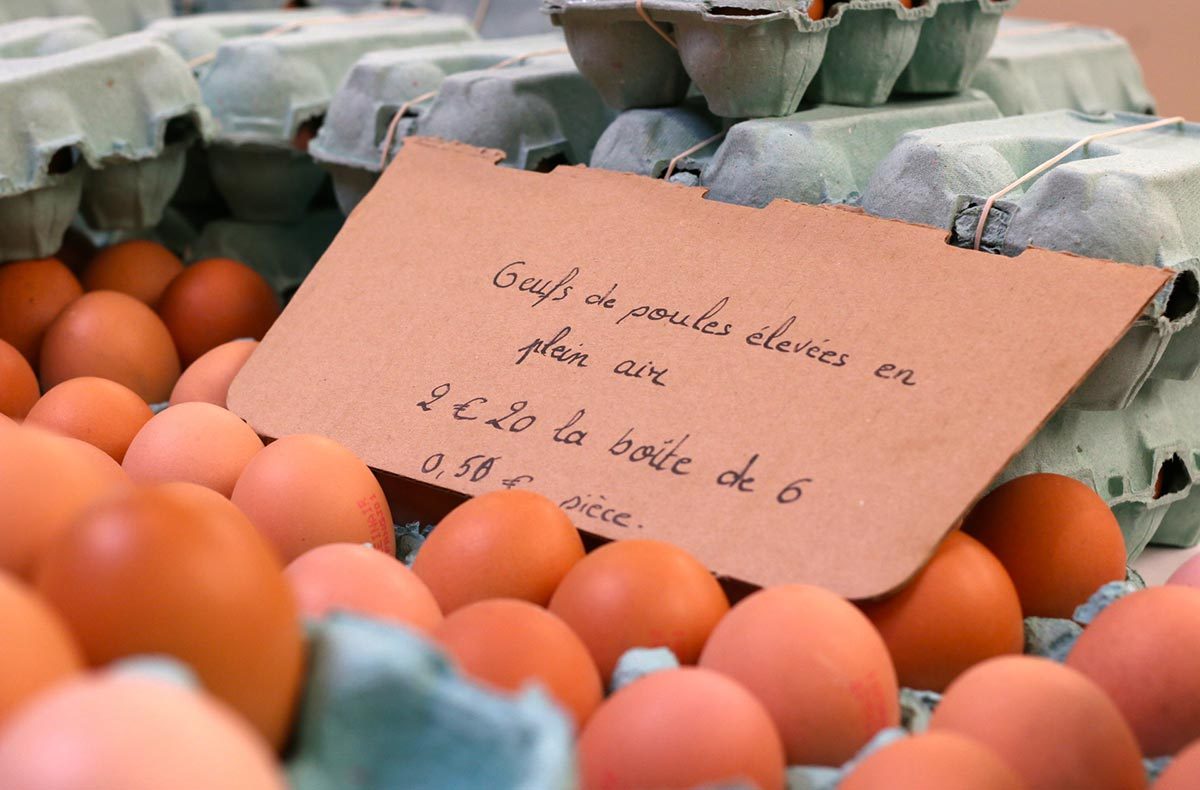 Oeufs de poules élevées en
plein air
2 € 20 la boîte de 6
0,50 € pièce.